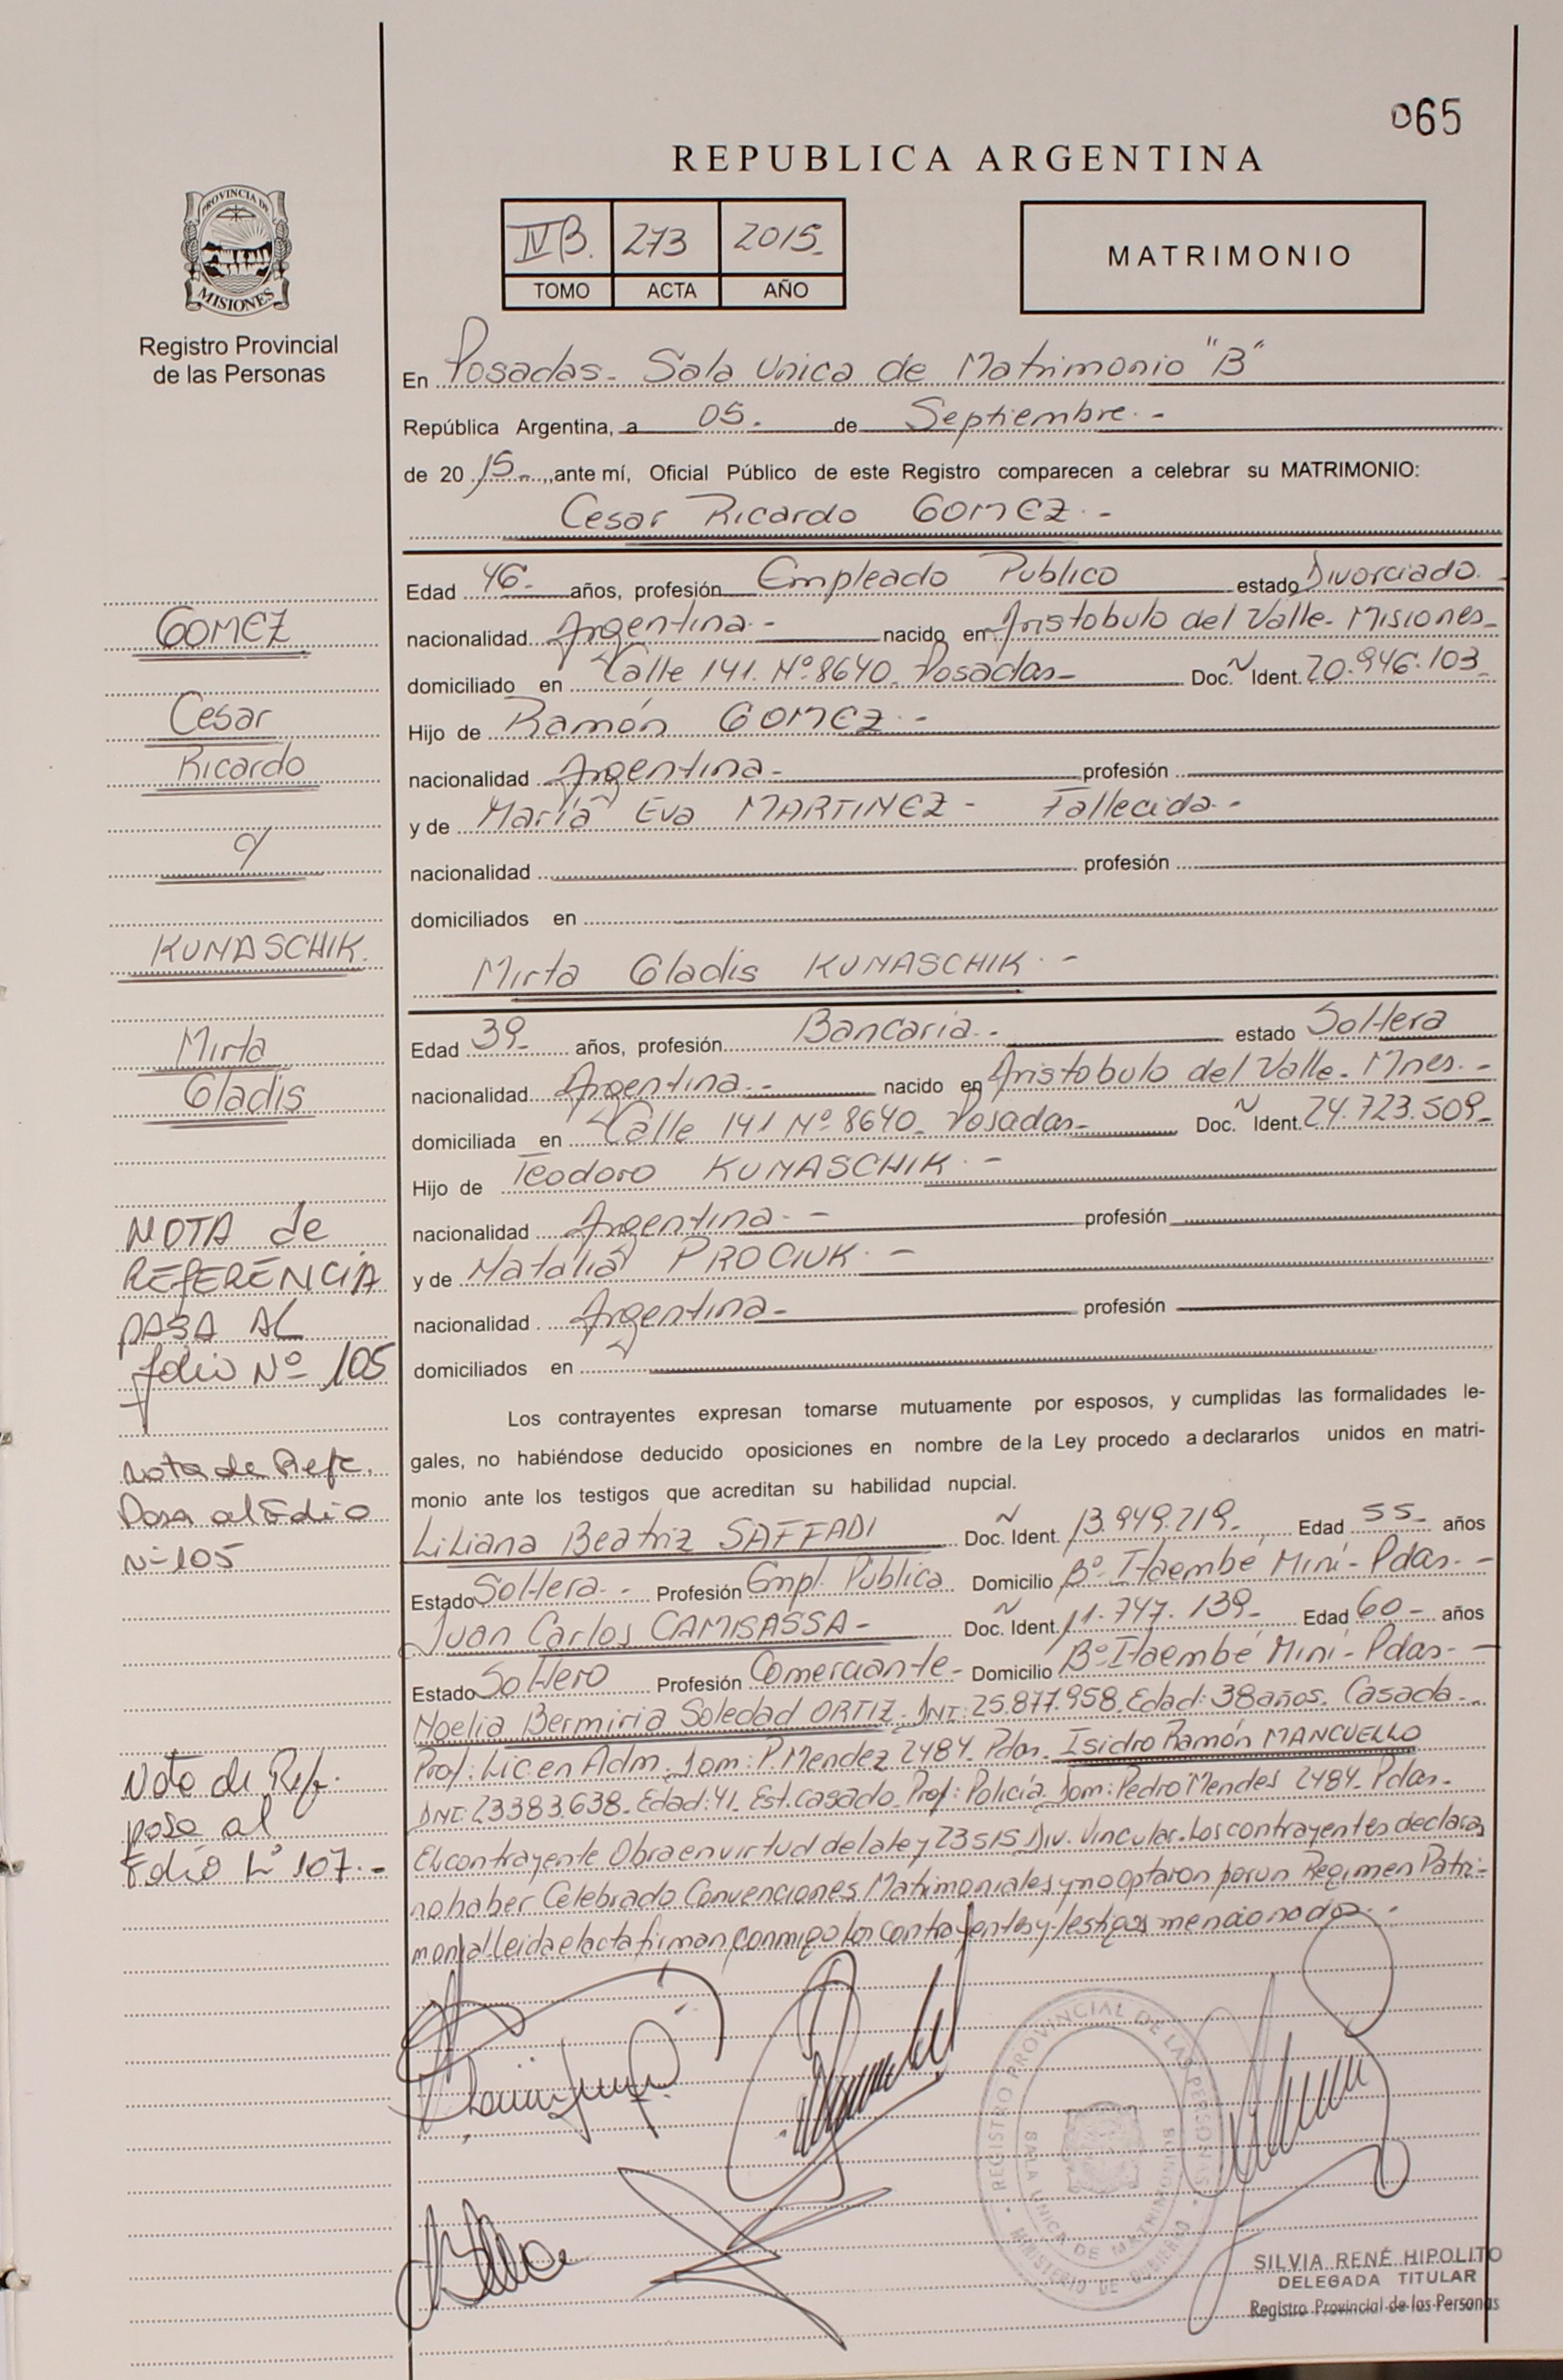 065
REPUBLICA ARGENTINA
PROVINCIA DE
MISIONES
Registro Provincial
de las Personas
IV B. 273 2015-
TOMO ACTA AÑO
MATRIMONIO
En Posadas- Sala Unica de Matrimonio "B"
República Argentina, a 05. de Septiembre.-
de 20 15-, ante mí, Oficial Público de este Registro comparecen a celebrar su MATRIMONIO:
Cesar Ricardo GOMEZ.-
Edad 46- años, profesión Empleado Publico estado Divorciado.
nacionalidad Argentina.- nacido en Aristobulo del Valle- Misiones-
domiciliado en Calle 141. Nº 8640- Posadas- Doc. N Ident. 20.946.103-
Hijo de Ramón GOMEZ.-
nacionalidad Argentina- profesión
y de María Eva MARTINEZ- Fallecida.-
nacionalidad profesión
domiciliados en
Mirta Gladis KUNASCHIK.-
Edad 39- años, profesión Bancaria.- estado Soltera
nacionalidad Argentina.- nacido en Aristobulo del Valle- Mnes.-
domiciliada en Calle 141 Nº 8640- Posadas- Doc. N Ident. 24.723.509-
Hijo de Teodoro KUNASCHIK.-
nacionalidad Argentina.- profesión
y de Natalia PROCIUK.-
nacionalidad Argentina- profesión
domiciliados en
Los contrayentes expresan tomarse mutuamente por esposos, y cumplidas las formalidades le-
gales, no habiéndose deducido oposiciones en nombre de la Ley procedo a declararlos unidos en matri-
monio ante los testigos que acreditan su habilidad nupcial.
Liliana Beatriz SAFFADI Doc. N Ident. 13.949.219- Edad 55- años
Estado Soltera.- Profesión Empl. Publica Domicilio Bº Itaembé Mini- Pdas.-
Juan Carlos CAMISASSA- Doc. N Ident. 11.747.139- Edad 60- años
Estado Soltero Profesión Comerciante- Domicilio Bº Itaembé Mini- Pdas.-
Noelia Bermiria Soledad ORTIZ- DNI: 25.877.958. Edad: 38 años. Casada-
Prof: Lic en Adm. Dom: P. Mendez 2484- Pdas. Isidro Ramón MANCUELLO
DNI: 23383.638- Edad: 41- Est. casado- Prof: Policía. Dom: Pedro Mendes 2484- Pdas-
El contrayente Obra en virtud de la ley 23515 Div. Vincular. Los contrayentes declaran
no haber Celebrado Convenciones Matrimoniales y no optaron por un Regimen Patri-
monial- Leida el acta firman conmigo los contrayentes y testigos mencionados.-
GOMEZ
Cesar
Ricardo
y
KUNASCHIK.
Mirta
Gladis
NOTA de
REFERENCIA
PASA AL
folio Nº 105
Nota de Refe.
Pasa al Folio
Nº 105
Nota de Refe.
pasa al
Folio Nº 107.-
REGISTRO PROVINCIAL DE LAS PERSONAS
SALA UNICA DE MATRIMONIOS
MINISTERIO DE GOBIERNO
SILVIA RENÉ HIPOLITO
DELEGADA TITULAR
Registro Provincial de las Personas